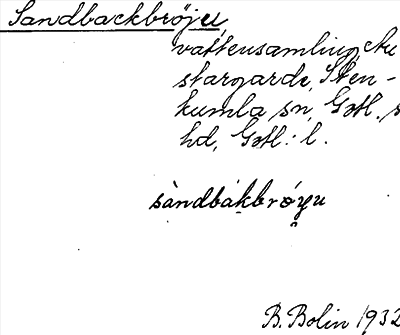 Sandbackbröju,
vattensamling,
stargarde, Sten-
kumla sn, Gotl. s
hd, Gotl:s l.
sàndbákbrǿyu
B. Bolin 1932